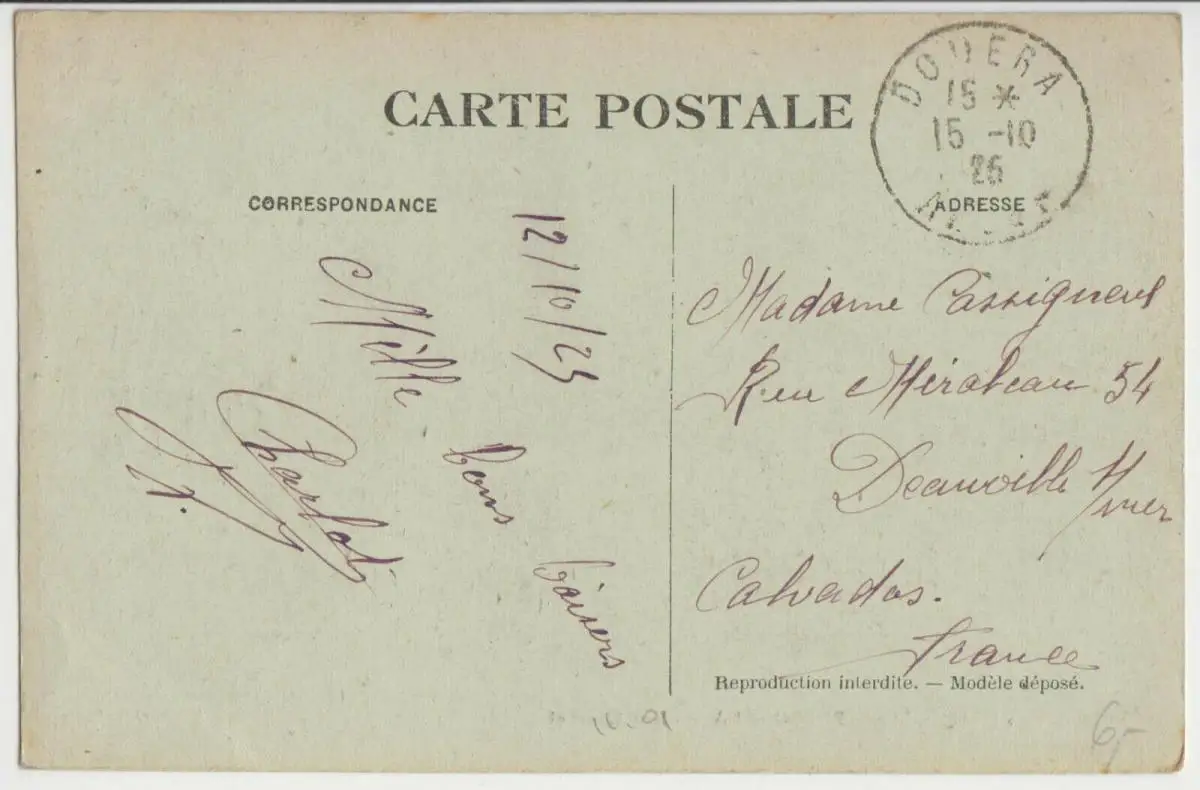 CARTE POSTALE
DOUERA
15 *
15 -10
25
CORRESPONDANCE
ADRESSE
12/10/25
Mille bons baisers
Charlot
Madame Cassigneul
Rue Mirabeau 54
Deauville s/mer
Calvados.
France
Reproduction interdite. — Modèle déposé.
6,-